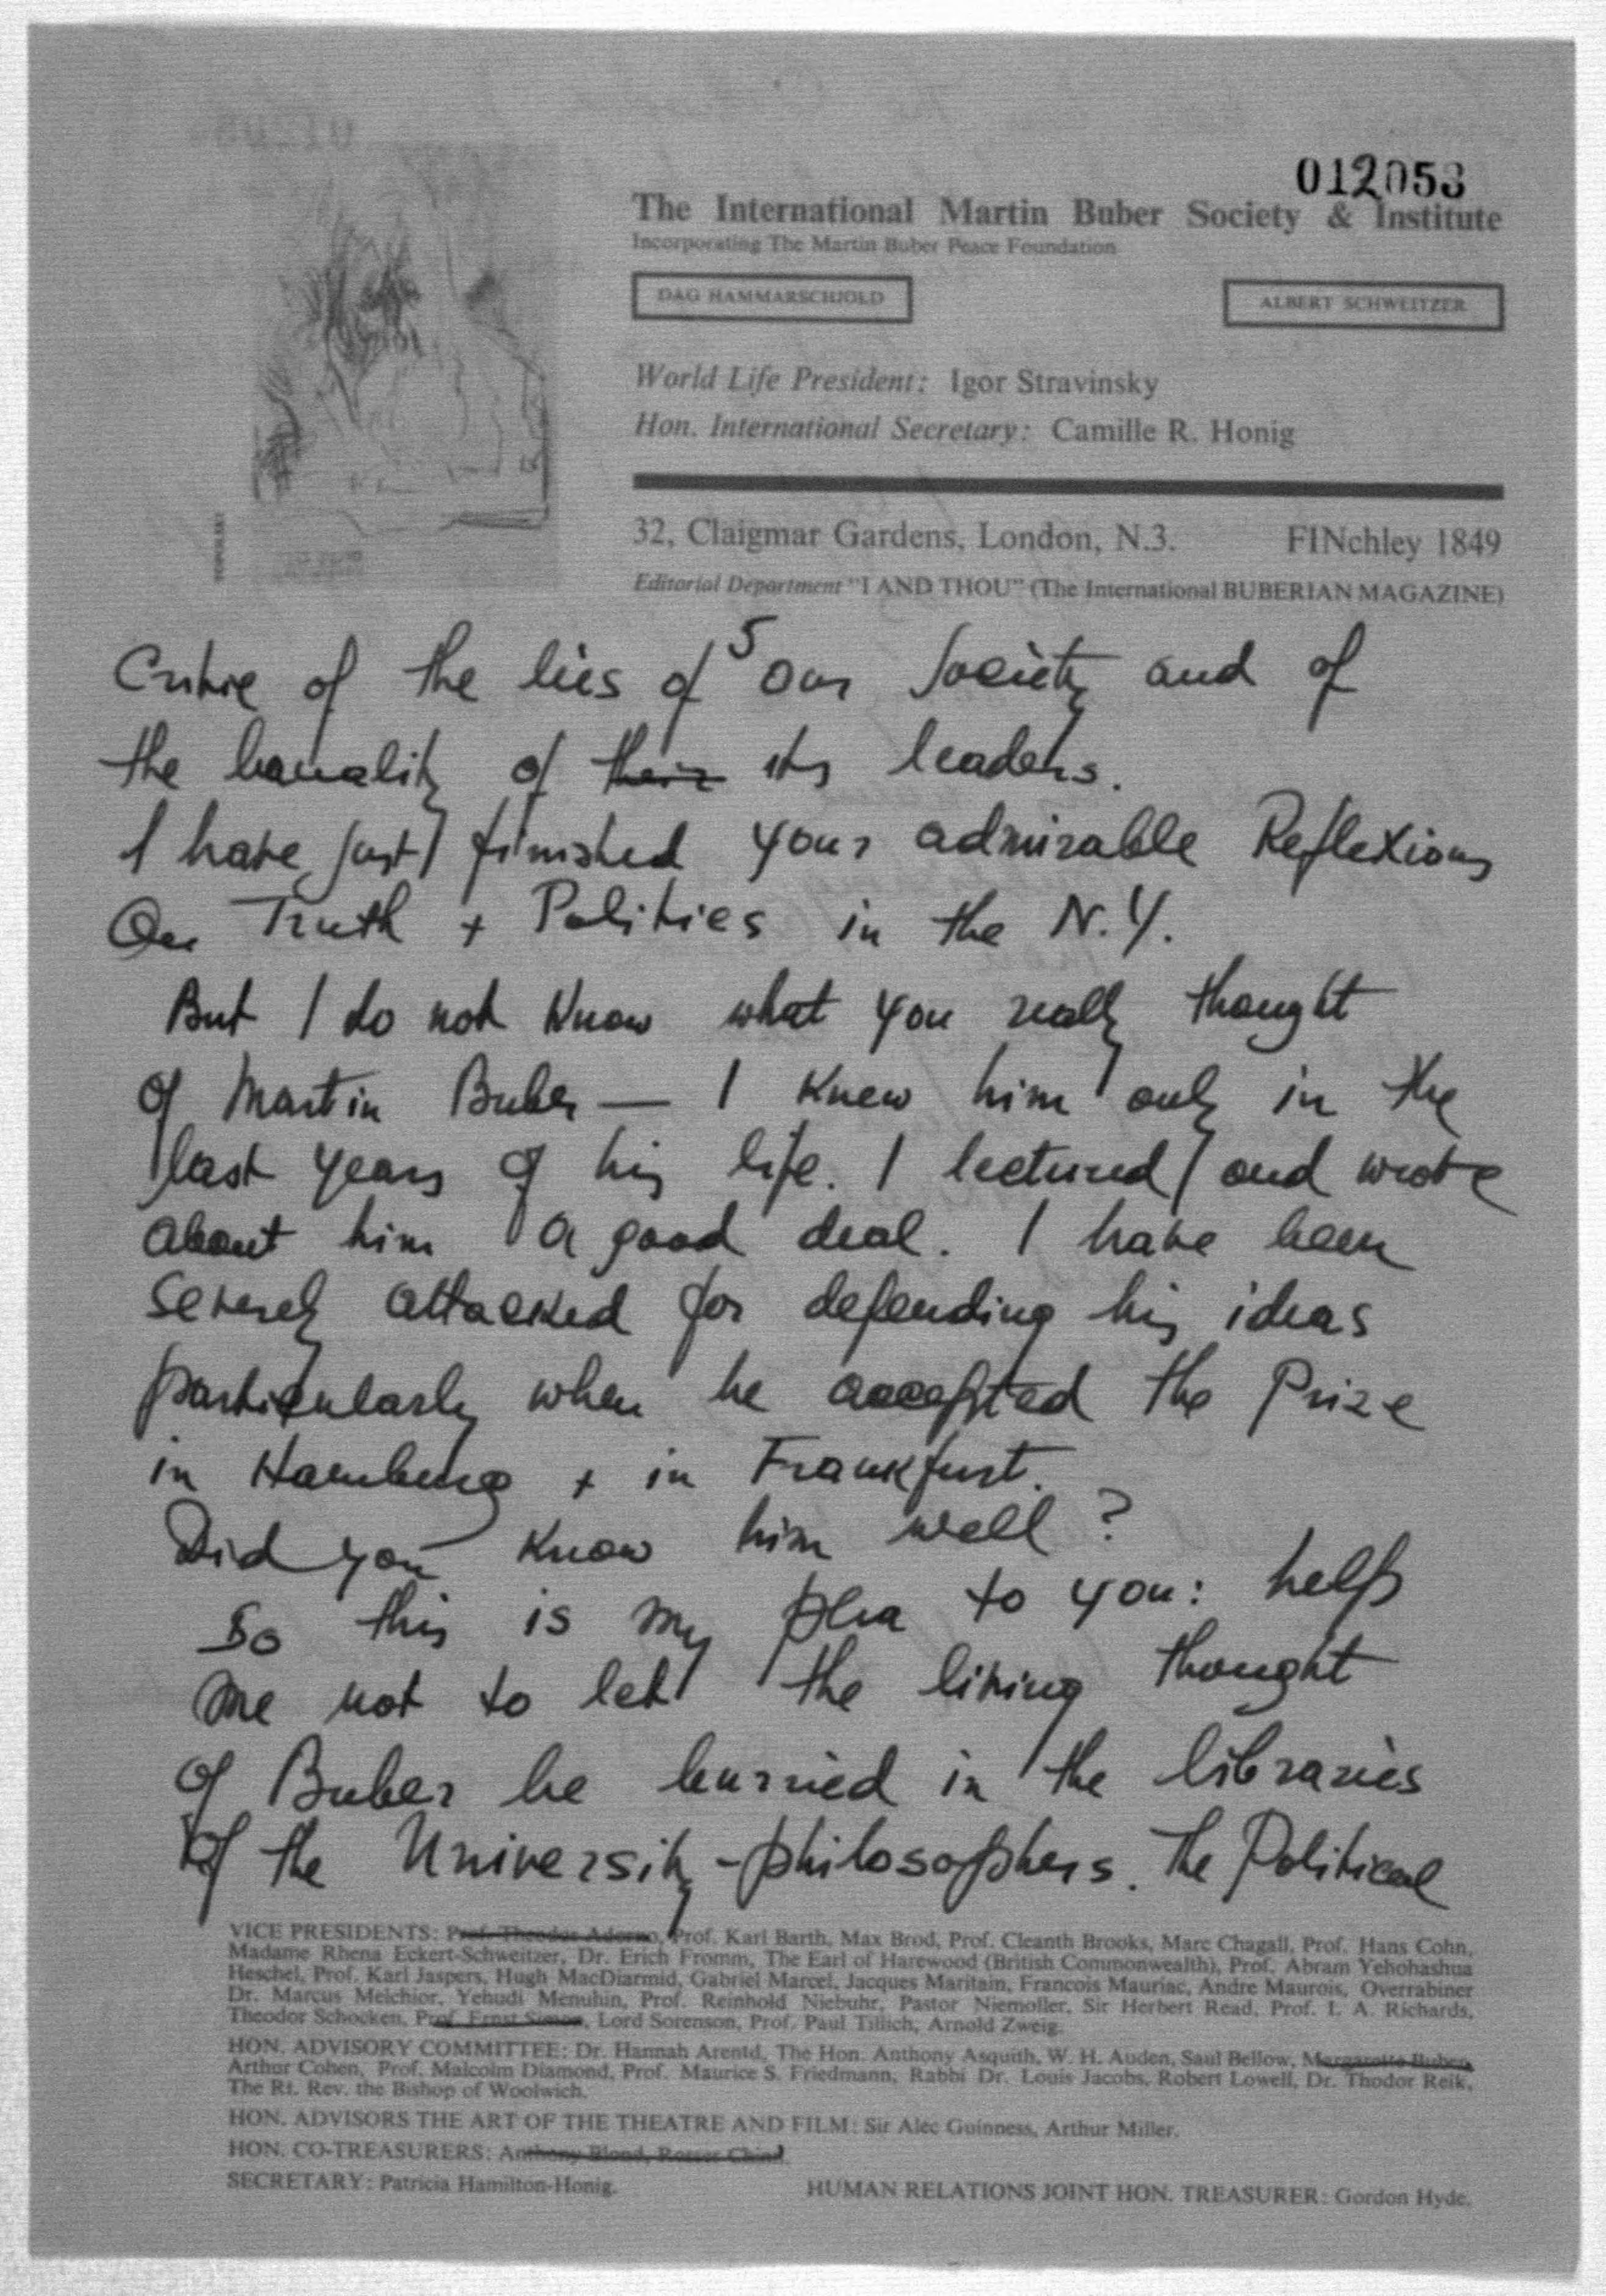 012053
The International Martin Buber Society & Institute
Incorporating The Martin Buber Peace Foundation
DAG HAMMARSCHJOLD
ALBERT SCHWEITZER
World Life President: Igor Stravinsky
Hon. International Secretary: Camille R. Honig
32, Claigmar Gardens, London, N.3. FINchley 1849
Editorial Department "I AND THOU" (The International BUBERIAN MAGAZINE)
5
Critic of the lies of our Society and of
the banality of their its leaders.
I have just finished your admirable Reflexions
On Truth + Politics in the N.Y.
But I do not know what you really thought
of Martin Buber — I knew him only in the
last years of his life. I lectured and wrote
about him a good deal. I have been
severely attacked for defending his ideas
particularly when he accepted the Prize
in Hamburg + in Frankfurt.
Did you know him well?
So this is my plea to you: help
me not to let the living thought
of Buber be burried in the libraries
of the University-philosophers. The Political
VICE PRESIDENTS: Prof. Theodor Adorno, Prof. Karl Barth, Max Brod, Prof. Cleanth Brooks, Marc Chagall, Prof. Hans Cohn,
Madame Rhena Eckert-Schweitzer, Dr. Erich Fromm, The Earl of Harewood (British Commonwealth), Prof. Abram Yehohashua
Heschel, Prof. Karl Jaspers, Hugh MacDiarmid, Gabriel Marcel, Jacques Maritain, Francois Mauriac, Andre Maurois, Overrabiner
Dr. Marcus Melchior, Yehudi Menuhin, Prof. Reinhold Niebuhr, Pastor Niemoller, Sir Herbert Read, Prof. I. A. Richards,
Theodor Schocken, Prof. Ernst Simon, Lord Sorenson, Prof. Paul Tillich, Arnold Zweig.
HON. ADVISORY COMMITTEE: Dr. Hannah Arentd, The Hon. Anthony Asquith, W. H. Auden, Saul Bellow, Margarette Buber,
Arthur Cohen, Prof. Malcolm Diamond, Prof. Maurice S. Friedmann, Rabbi Dr. Louis Jacobs, Robert Lowell, Dr. Thodor Reik,
The Rt. Rev. the Bishop of Woolwich.
HON. ADVISORS THE ART OF THE THEATRE AND FILM: Sir Alec Guinness, Arthur Miller.
HON. CO-TREASURERS: Anthony Blond, Rosser Chinl
SECRETARY: Patricia Hamilton-Honig. HUMAN RELATIONS JOINT HON. TREASURER: Gordon Hyde.